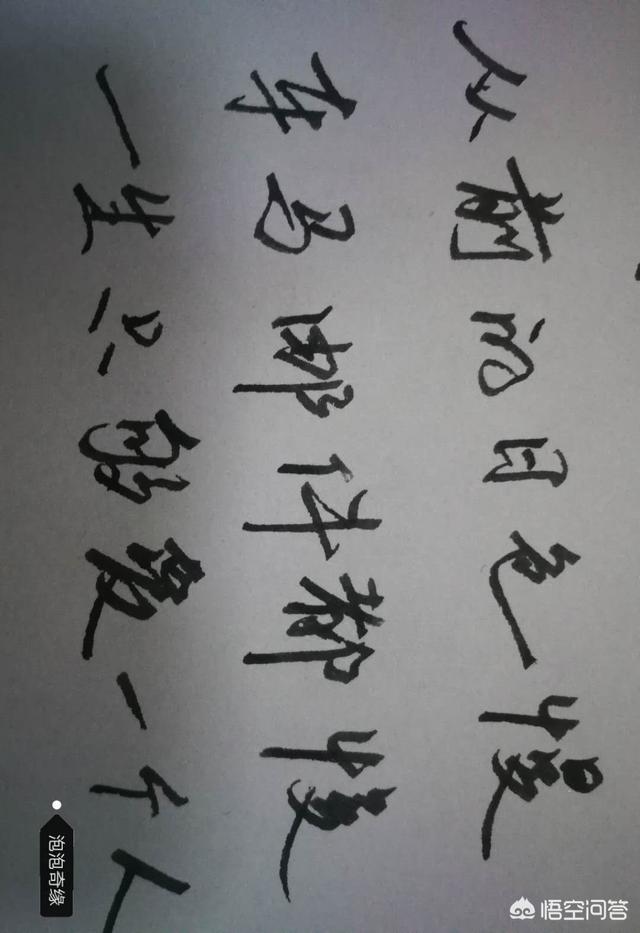 从前的日色慢
车马邮件都慢
一生只够爱一个人
泡泡奇缘
悟空问答